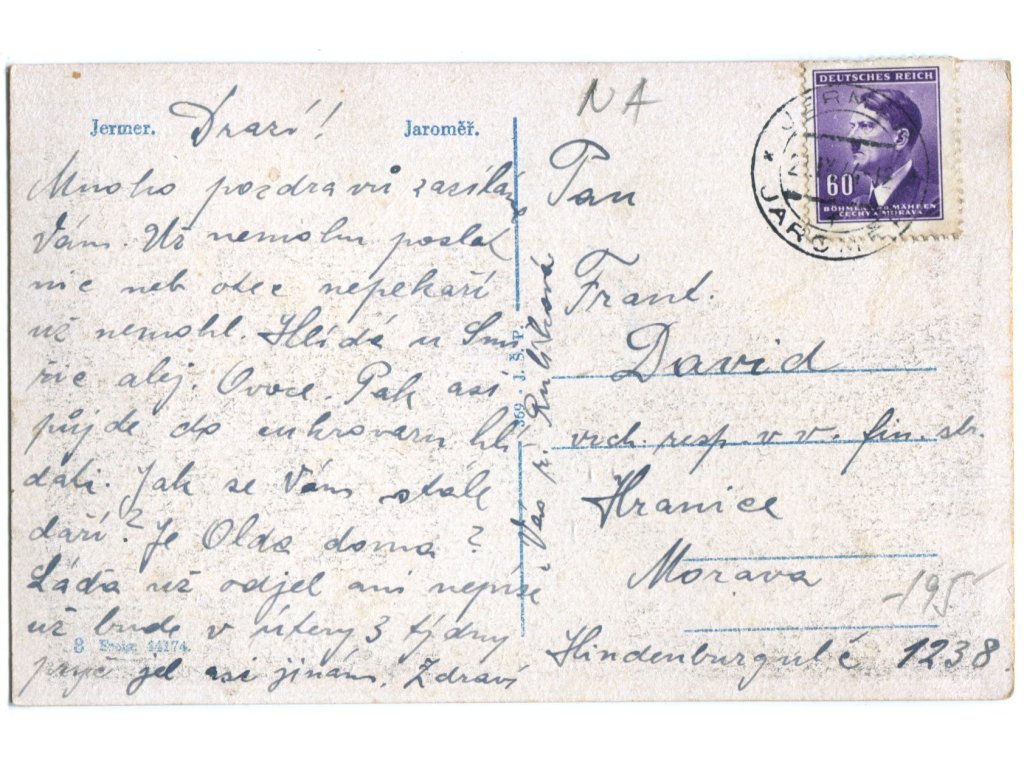 Jermer.
Jaroměř.
Drazí!
Mnoho pozdravů zasílám
Vám. Už nemohu poslat
nic neb otec nepekaří
už nemohl. Hlídá u Smi
řic alej. Ovoce. Pak asi
půjde do cukrovaru hlí
dati. Jak se Vám stále
daří? Je Olda doma?
Láďa už odjel ani nepíše
už bude v úterý 3 týdny
pryč jel asi jinám. Zdraví
8 14174.
Vás
369 · J. Š. P.
NA
DEUTSCHES REICH
60
BÖHMEN UND MÄHREN
ČECHY A MORAVA
JAROMĚŘ
Pan
Frant.
David
vrch. resp. v v. fin. str.
Hranice
Morava
-195
Hindenburgul č 1238.